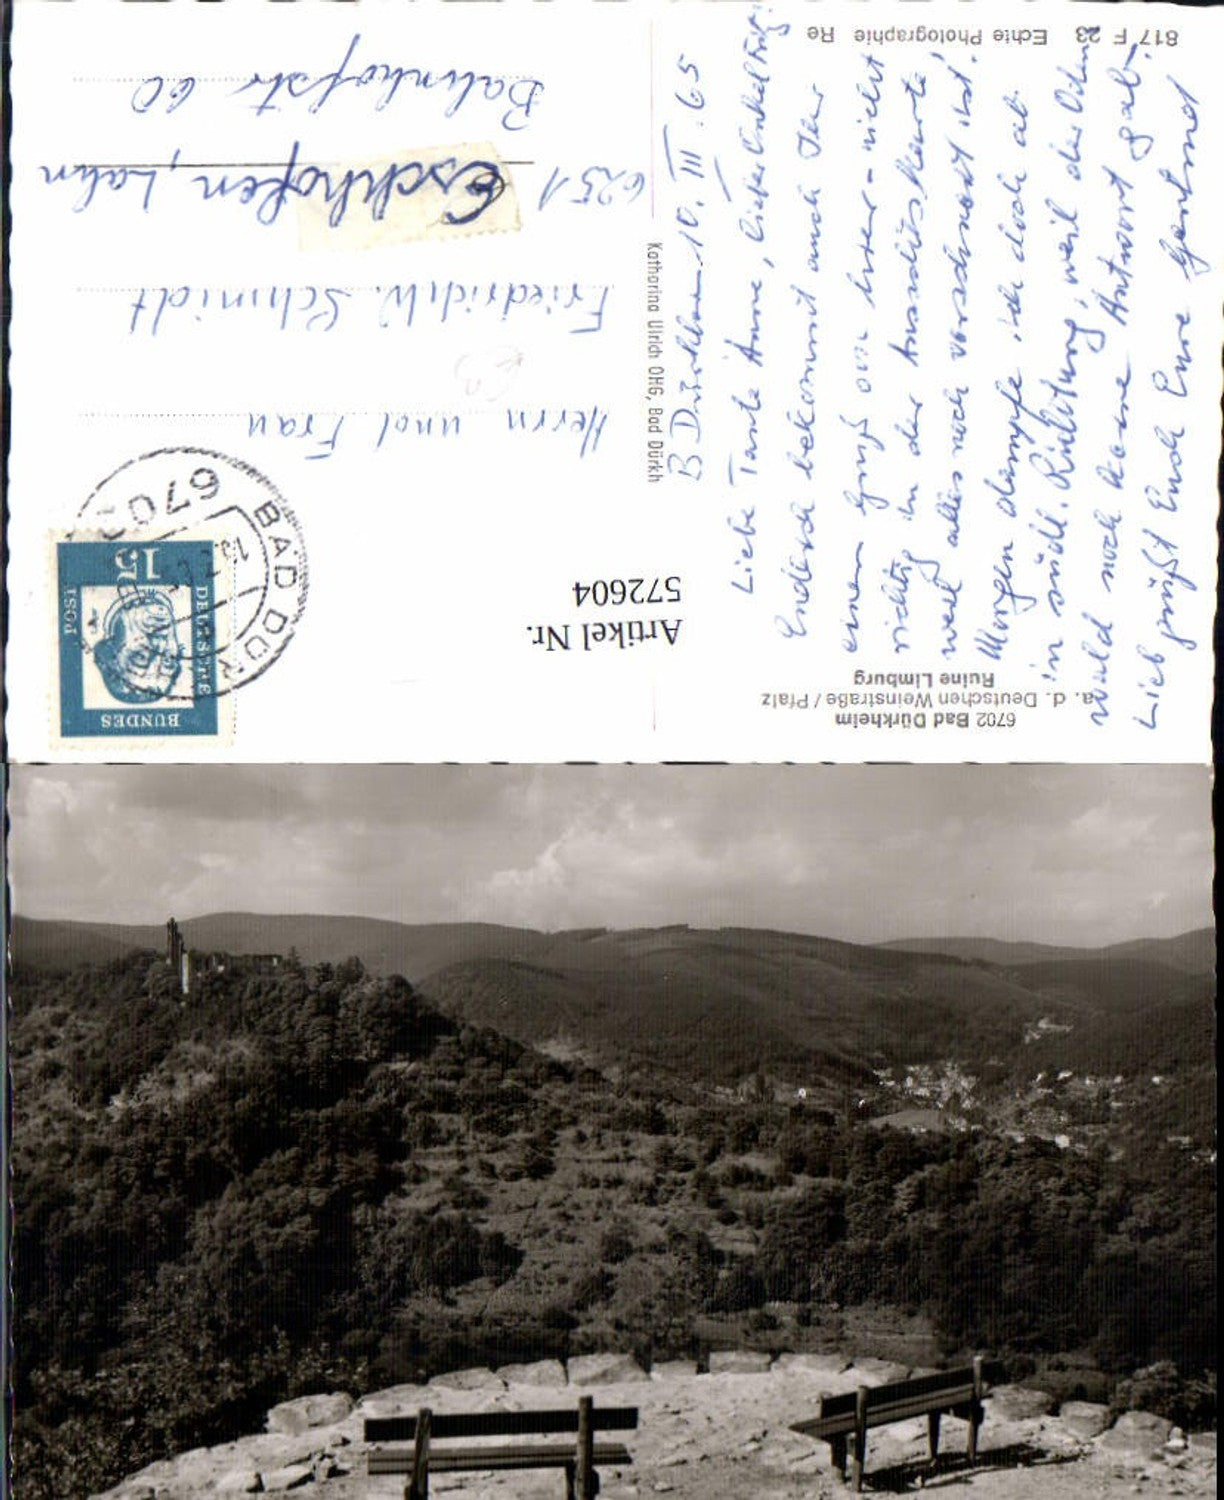 817 F 23 Echte Photographie Re
6702 Bad Dürkheim
a. d. Deutschen Weinstraße / Pfalz
Ruine Limburg
Katharina Ulrich OHG, Bad Dürkh
B Dürkheim 10. III. 65
Liebe Tante Änne, lieber Onkel Fritz!
Endlich bekommt auch Ihr
einen Gruß von hier - nicht
richtig in der Ansichtskarte,
weil alles noch verschneit ist.
Morgen dampfe ich doch ab
in südl. Richtung, weil der Oden-
wald noch keine Antwort gab.
Lieb grüßt Euch Eure Gertrud
BUNDES
POST
DEUTSCHE
15
6702 BAD DÜRK
Herrn und Frau
Friedrich W. Schmidt
6251 Eschhofen, Lahn
Bahnhofstr 60
Artikel Nr.
572604